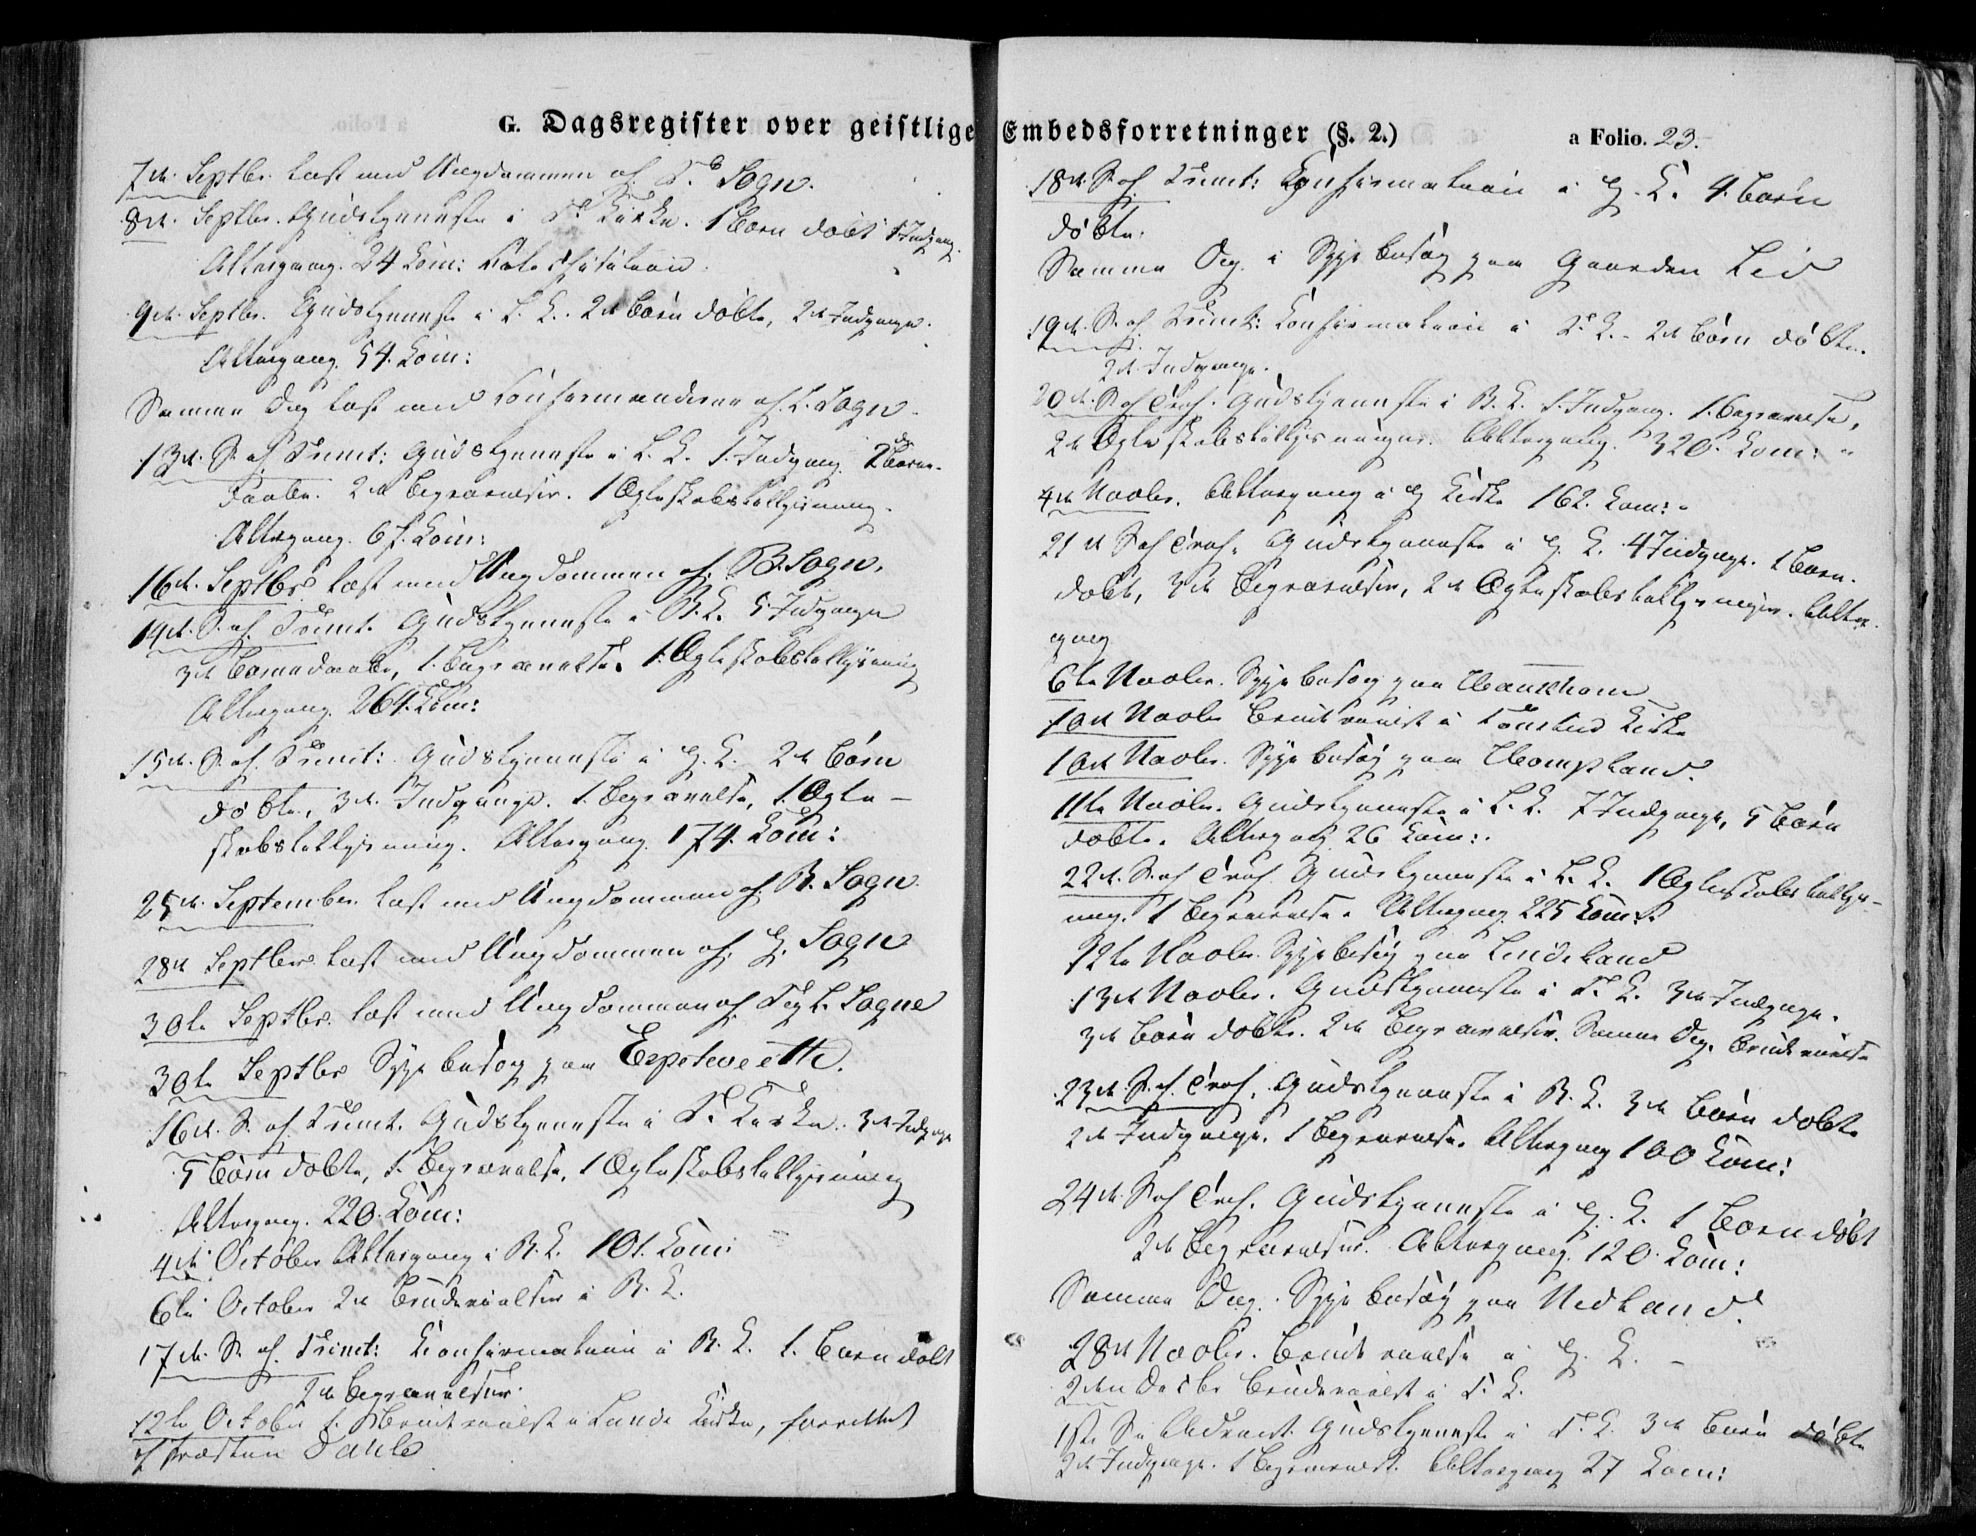 G. Dagsregister over geistlige Embedsforretninger (§. 2.) a Folio. 23.
7de Septbr. læst med Ungdommen af T. Sogn.
8de Septbr. Gudstjeneste i T. Kirke. 1 Barn døbt 1 Indgang.
Altergang. 24 Com:
9de Septbr. Gudstjeneste i L. K. 2de Børn døbte, 2de Indgange.
Altergang. 54. Com:
Samme Dag læst med Confirmanderne af L. Sogn.
13de S. af Trinit: Gudstjeneste i L. K. 1. Indgang. 2de Børne-
Daabe. 2de Begravelser. 1 Ægteskabstillysning.
Altergang. Com:
16de Septbr. læst med Ungdommen af B. Sogn.
14de S. af Trinit. Gudstjeneste i B. K. 5 Indgange
3de Børnedaabe, 1. Begravelse. 1. Ægteskabstillysning
Altergang. 264. Com:
15de S. af Trinit: Gudstjeneste i H. K. 2de Børn
døbte, 3de Indgange. 1. Begravelse, 1. Ægte-
skabstillysning. Altergang. 174. Com:
25de September læst med Ungdommen af B. Sogn.
28de Septbr. læst med Ungdommen af H. Sogn
30te Septbr. læst med Ungdommen af T og L. Sogne
30te Septbr Sygebesøg paa Espetveetth.
16de S. af Trinit. Gudstjeneste i T. Kirke. 3de Indgange
5 Børn døbte, 1. Begravelse, 1 Ægteskabstillysning
Altergang. 220. Com:
4de October Altergang i B. K. 101. Com:
6te October 2de Brudevielser i B. K.
17de S. af Trinit: Confirmation i B. K. 1. Barn døbt
2de Begravelser.
12te October 1. Brudevielse i Lunde Kirke, forrettet
af Præsten
18de S. af Trinit: Confirmation i H. K. 4. Børn
døbte.
Samme Dag i Sygebesøg paa Gaarden Lid
19de S. af Trinit: Confirmation i T. K. 2de Børn døbte.
2de Indgange.
20de S. af Trin. Gudstjeneste i B. K. 1. Indgang. 1. Begravelse,
2de Ægteskabstillysninger. Altergang. 320. Com:
4de Novbr. Altergang i H Kirke 162. Com:
21de S af Trin. Gudstjeneste i H. K. 4 Indgange. 1 Barn
døbt, 3de Begravelser, 2de Ægteskabstillysninger. Alter-
gang
6te Novbr. Sygebesøg paa
10de Novbr Brudevielse i Tonstad Kirke
10de Novbr. Sygebesøg paa Hompland.
11te Novbr. Gudstjeneste i L. K. 7 Indgange, 5 Børn
døbte. Altergang 26 Com:
22de S. af Trin. Gudstjeneste i L. K. 1 Ægteskabstillys-
ning. 1 Begravelse. Altergang 225 Com:
12te Novbr. Sygebesøg paa Lindeland
13de Novbr. Gudstjeneste i T. K. 3de Indgange.
3de Børn døbte. 2de Begravelser. Samme Dag. Brudevielse
23de S. af Trin. Gudstjeneste i B. K. 3de Børn døbte
2de Indgange. 1 Begravelse. Altergang 100 Com:
24de S. af Trin. Gudstjeneste i H. K. 1 Barn døbt
2de Begravelser. Altergang. 120. Com:
Samme Dag. Sygebesøg paa Nedland.
28de Novbr. Brudevielse i H. K.
2den Decbr Brudevielse i T. K.
1ste S. Advent Gudstjeneste i T. K. 3de Børn døbte
2de Indgange. 1 Begravelse. Altergang 27 Com: